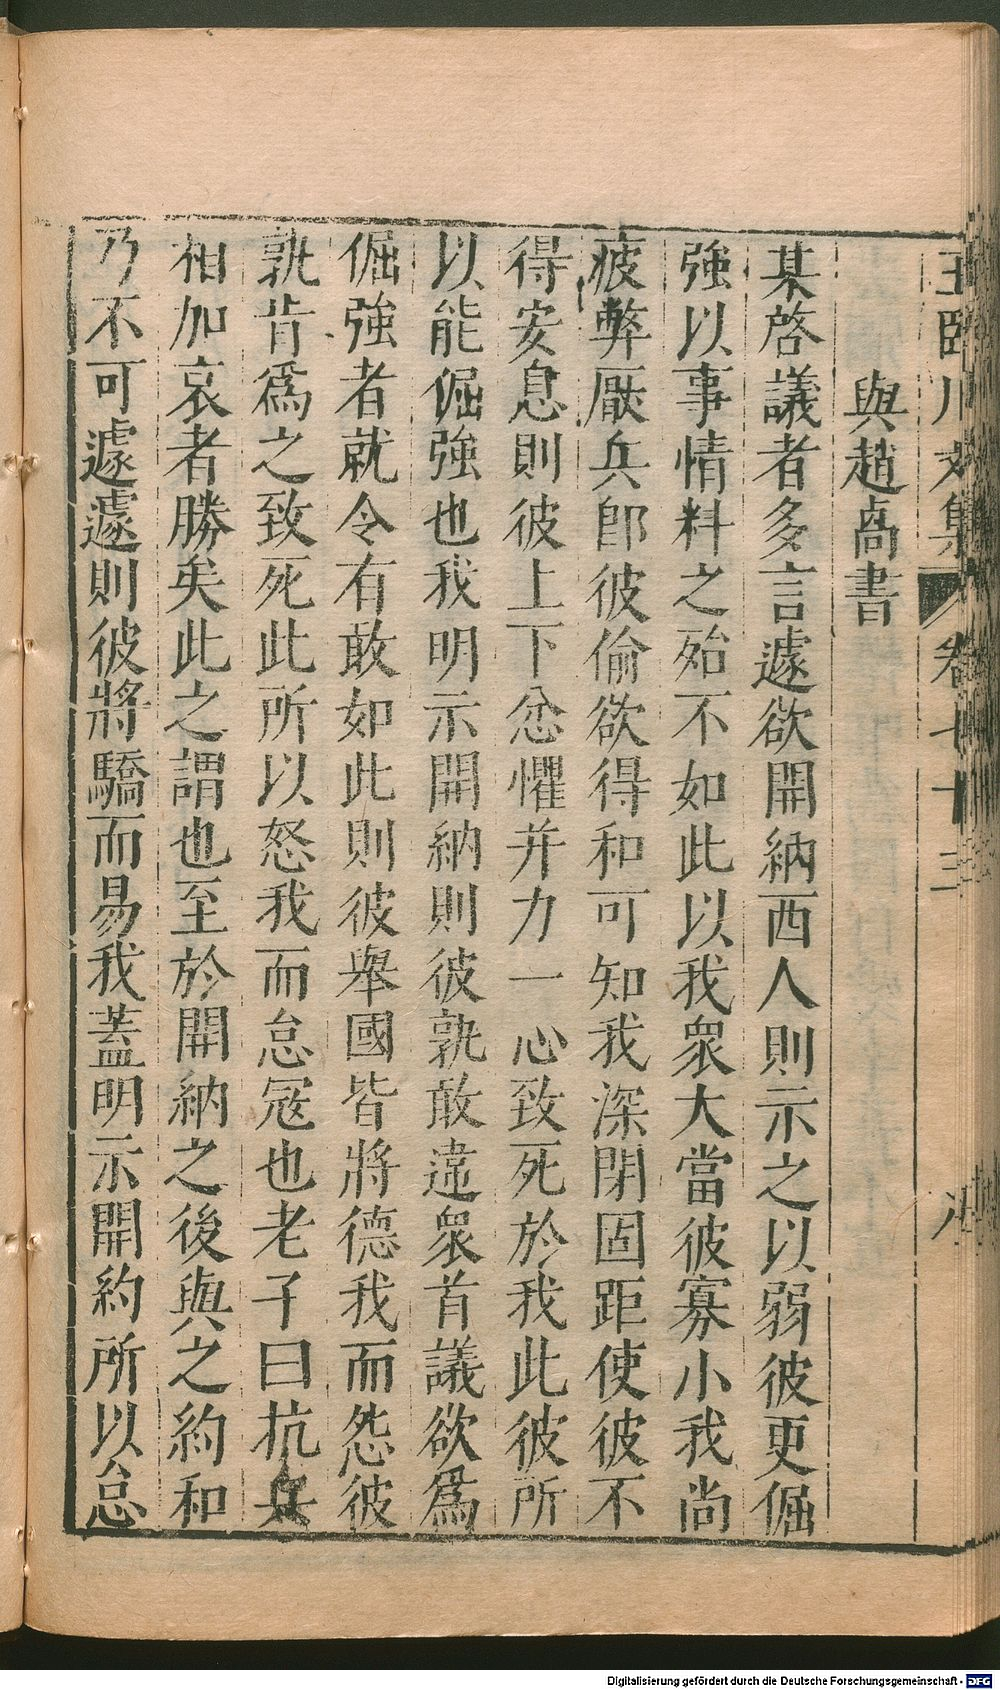 王臨川文集 卷七十三 八
與趙卨書
某啓議者多言遽欲開納西人則示之以弱彼更倔
強以事情料之殆不如此以我衆大當彼寡小我尚
疲弊厭兵卽彼偷欲得和可知我深閉固距使彼不
得安息則彼上下忿懼并力一心致死於我此彼所
以能倔強也我明示開納則彼孰敢違衆首議欲爲
倔強者就令有敢如此則彼舉國皆將德我而怨彼
孰肯爲之致死此所以怒我而怠寇也老子曰抗兵
相加哀者勝矣此之謂也至於開納之後與之約和
乃不可遽遽則彼將驕而易我蓋明示開約所以怠
Digitalisierung gefördert durch die Deutsche Forschungsgemeinschaft - DFG